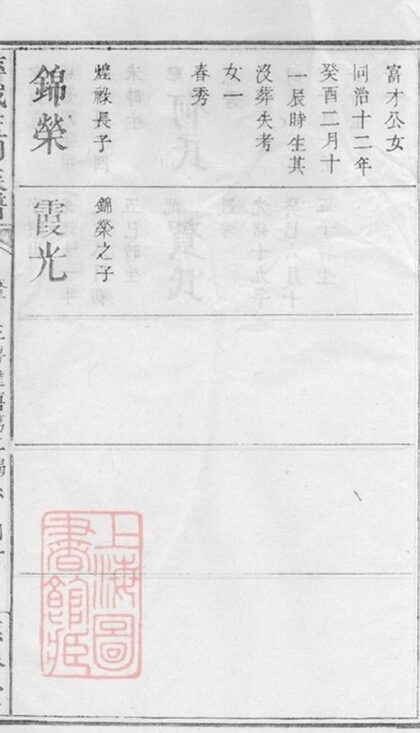 富才公女
同治十二年
癸酉二月十
一辰時生其
沒葬失考
女一
春秀
煌祿長子
錦榮
錦榮之子
霞光
上海圖
書館藏